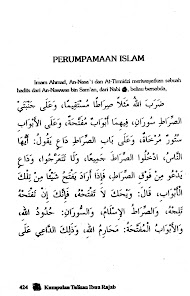 PERUMPAMAAN ISLAM
Imam Ahmad, An-Nasa'i dan At-Tirmidzi meriwayatkan sebuah
hadits dari An-Nawwas bin Sam'an, dari Nabi ﷺ, beliau bersabda,
ضَرَبَ اللهُ مَثَلًا صِرَاطًا مُسْتَقِيمًا، وَعَلَى جَنْبَتَيِ
الصِّرَاطِ سُورَانِ، فِيهِمَا أَبْوَابٌ مُفَتَّحَةٌ، وَعَلَى الْأَبْوَابِ
سُتُورٌ مُرْخَاةٌ، وَعَلَى بَابِ الصِّرَاطِ دَاعٍ يَقُولُ: أَيُّهَا
النَّاسُ، ادْخُلُوا الصِّرَاطَ جَمِيعًا، وَلَا تَتَعَرَّجُوا، وَدَاعٍ
يَدْعُو مِنْ فَوْقِ الصِّرَاطِ، فَإِذَا أَرَادَ يَفْتَحُ شَيْئًا مِنْ تِلْكَ
الْأَبْوَابِ، قَالَ: وَيْحَكَ لَا تَفْتَحْهُ، فَإِنَّكَ إِنْ تَفْتَحْهُ
تَلِجْهُ، وَالصِّرَاطُ الْإِسْلَامُ، وَالسُّورَانِ: حُدُودُ اللهِ،
وَالْأَبْوَابُ الْمُفَتَّحَةُ: مَحَارِمُ اللهِ، وَذَلِكَ الدَّاعِي عَلَى
424 Kumpulan Tulisan Ibnu Rajab